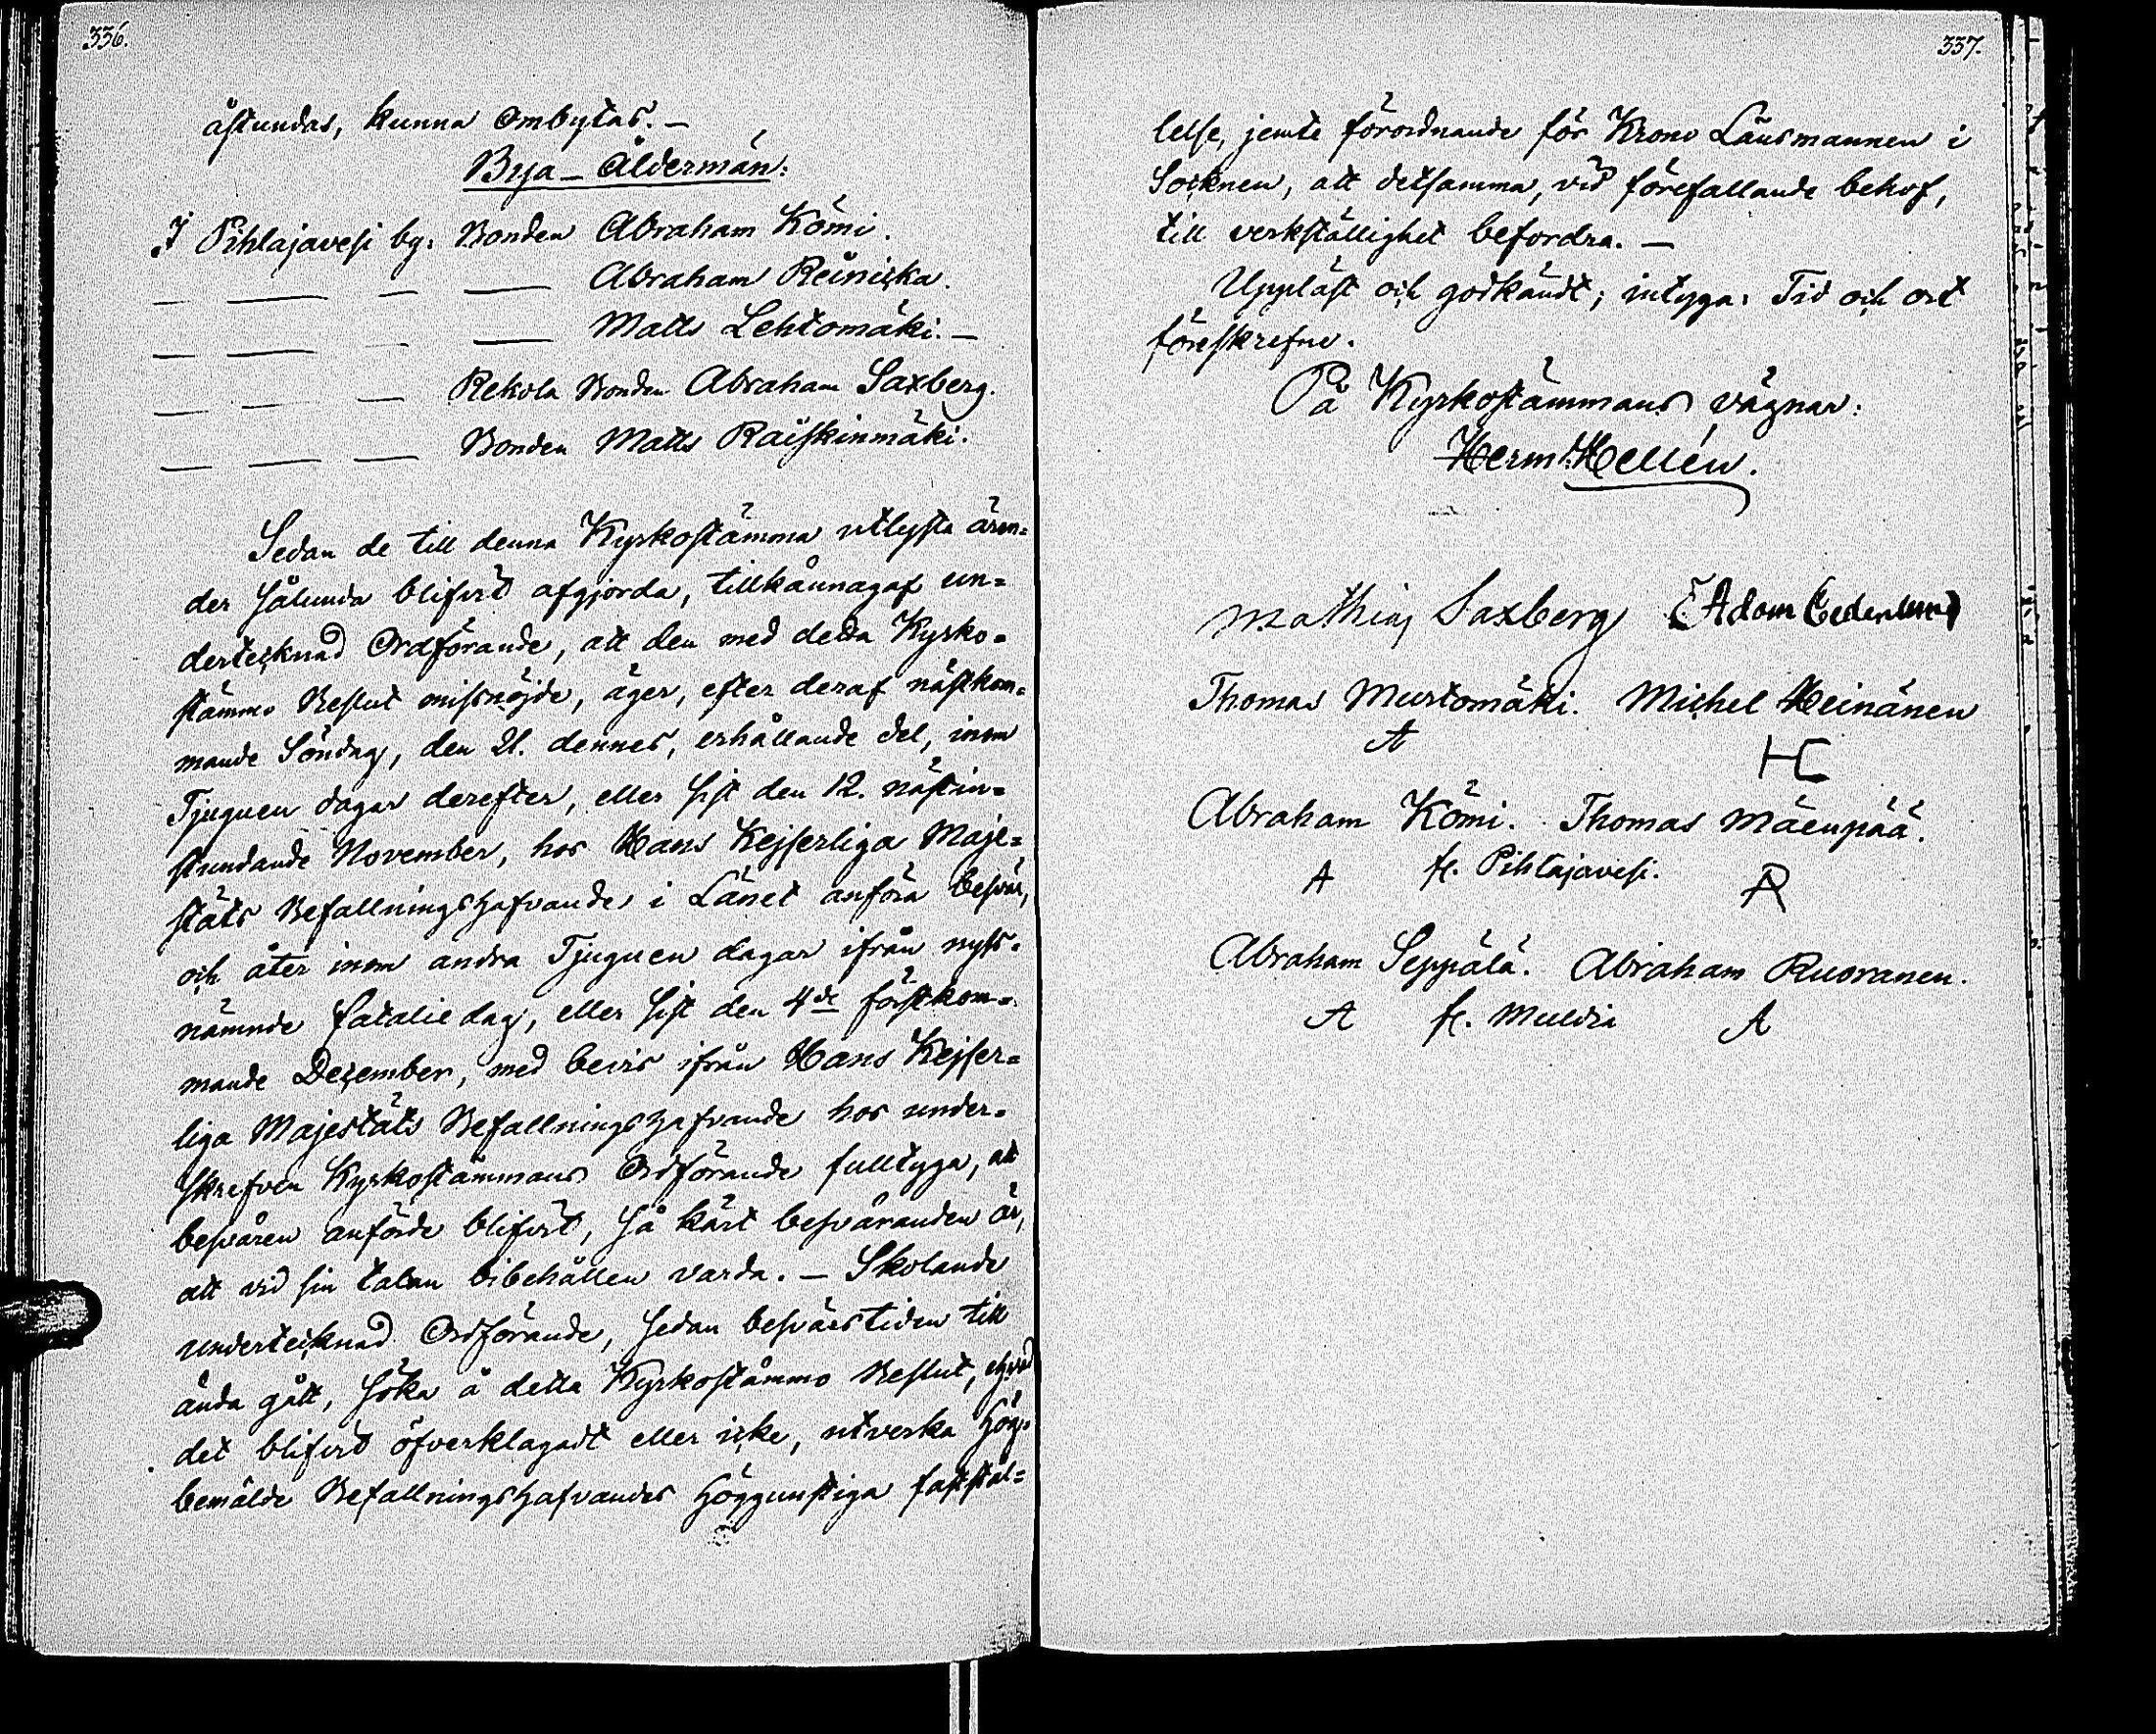 336.
åstundas, kunna ombytas. —
Bya-Åldermän:
I Pihlajavesi by: Bonden Abraham Kömi.
— — — — Abraham Reinicka.
— — — — Matts Lehtomäki. —
— — — Rekola Bonden Abraham Saxberg.
— — — Bonden Matts Raiskinmäki.
Sedan de till denna Kyrkostämma utlysta ären=
der sålunda blifvit afgjorda, tillkännagaf un=
dertecknad Ordförande, att den med detta Kyrko=
stämmo Beslut missnöjde, äger, efter deraf nästkom=
mande Söndag, den 21. dennes, erhållande del, inom
Tjuguen dagar derefter, eller sist den 12. nästin=
stundande November, hos Hans Kejserliga Maje=
stäts Befallningshafvande i Länet anföra besvär,
och åter inom andra Tjuguen dagar ifrån nyss=
nämnde fataliedag, eller sist den 4de förstkom=
mande December, med bevis ifrån Hans Kejser=
liga Majestäts Befallningshafvande hos under=
skrefven Kyrkostämmans Ordförande fulltyga, att
besvären anförde blifvit, så kärt besväranden är,
att vid sin talan bibehållen varda. — Skolande
undertecknad Ordförande, sedan besvärstiden till
ända gått, söka å detta Kyrkostämmo Beslut, ehvad
det blifvit öfverklagadt eller icke, utverka Hög=
bemälde Befallningshafvandes höggunstiga faststäl=
337.
lelse, jemte förordnande för Krono Länsmannen i
Socknen, att detsamma, vid förefallande behof,
till verkställighet befordra. —
Uppläst och godkändt; intyga: Tid och ort
föreskrefne.
På Kyrkostämmans vägnar:
Herm: Hellén.
Mathias Saxberg Adam Cederlund
Thomas Murtomäki. Michel Heinänen
A HC
Abraham Kömi. Thomas Mäenpää.
A fr. Pihlajavesi. R
Abraham Seppälä. Abraham Ruoranen.
A fr. Muldia A